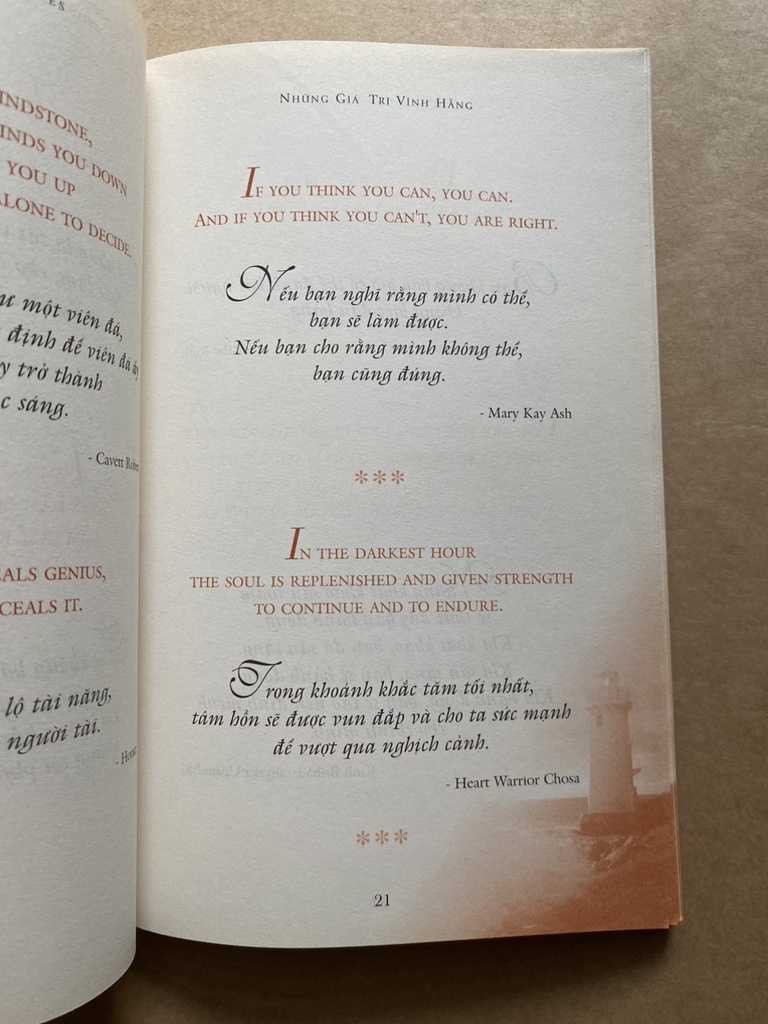 INDSTONE,
INDS YOU DOWN
YOU UP
ALONE TO DECIDE.
một viên đá,
định để viên đá
trở thành
sáng.
- Cavett
GENIUS,
IT.
lộ tài năng,
người tài.
NHỮNG GIÁ TRỊ VĨNH HẰNG
IF YOU THINK YOU CAN, YOU CAN.
AND IF YOU THINK YOU CAN'T, YOU ARE RIGHT.
Nếu bạn nghĩ rằng mình có thể,
bạn sẽ làm được.
Nếu bạn cho rằng mình không thể,
bạn cũng đúng.
- Mary Kay Ash
***
IN THE DARKEST HOUR
THE SOUL IS REPLENISHED AND GIVEN STRENGTH
TO CONTINUE AND TO ENDURE.
Trong khoảnh khắc tăm tối nhất,
tâm hồn sẽ được vun đắp và cho ta sức mạnh
để vượt qua nghịch cảnh.
- Heart Warrior Chosa
***
21